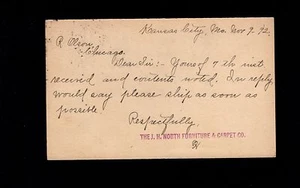 Kansas City, Mo. Nov 9. 92.
R. Olson,
Chicago.
Dear Sir:- Yours of 7th inst
received and contents noted. In reply
would say please ship as soon as
possible.
Respectfully,
THE J. H. NORTH FURNITURE & CARPET CO.